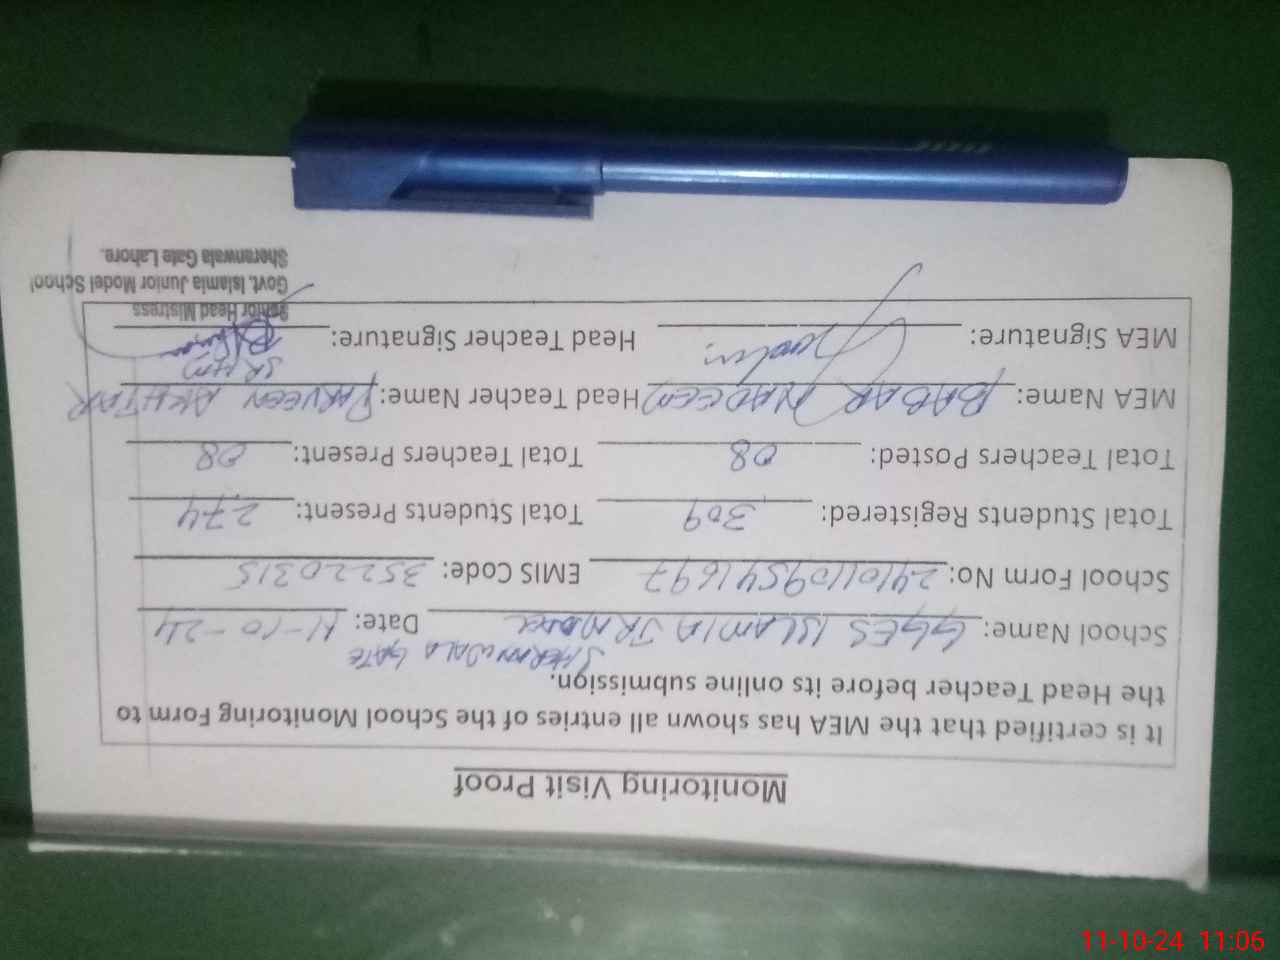 Monitoring Visit Proof
It is certified that the MEA has shown all entries of the School Monitoring Form to
the Head Teacher before its online submission.
SHERANWALA GATE
School Name: GGES ISLAMIA JR MODEL Date: 11-10-24
School Form No: 241011095541697 EMIS Code: 35220315
Total Students Registered: 309 Total Students Present: 274
Total Teachers Posted: 08 Total Teachers Present: 08
MEA Name: BABAR NADEEM Head Teacher Name: PARVEEN AKHTAR
SR HM
MEA Signature: Head Teacher Signature:
Senior Head Mistress
Govt. Islamia Junior Model School
Sheranwala Gate Lahore.
11-10-24 11:06